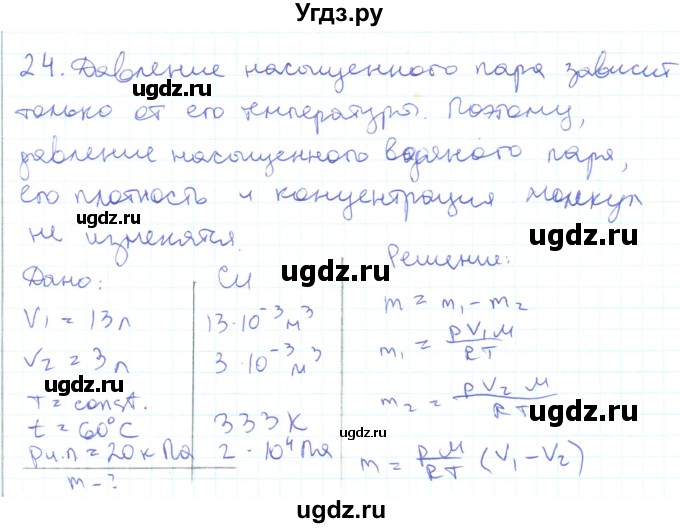 Угдз.ру
24. Давление насыщенного пара зависит
только от его температуры. Поэтому,
давление насыщенного водяного пара,
его плотность и концентрация молекул
не изменятся.
Дано:
V₁ = 13 л
V₂ = 3 л
T = const.
t = 60°C
pн.п = 20 кПа
m - ?
СИ
13·10⁻³ м³
3·10⁻³ м³
333 К
2·10⁴ Па
Решение:
m = m₁ - m₂
m₁ = pV₁M / RT
m₂ = pV₂M / RT
m = pM / RT (V₁ - V₂)
ugdz.ru
ugdz.ru
ugdz.ru
ugdz.ru
ugdz.ru
ugdz.ru
ugdz.ru
ugdz.ru
ugdz.ru
ugdz.ru
ugdz.ru